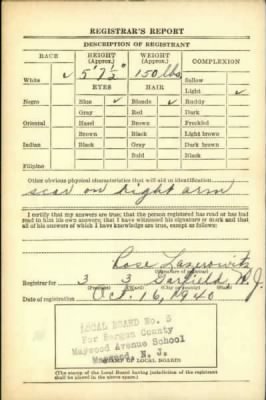 REGISTRAR'S REPORT
DESCRIPTION OF REGISTRANT
RACE HEIGHT (Approx.) WEIGHT (Approx.) COMPLEXION
White ✓ 5' 7½" 150 lbs. Sallow
EYES HAIR Light ✓
Negro Blue ✓ Blonde ✓ Ruddy
Gray Red Dark
Oriental Hazel Brown Freckled
Brown Black Light brown
Indian Black Gray Dark brown
Bald Black
Filipino
Other obvious physical characteristics that will aid in identification
scar on right arm
I certify that my answers are true; that the person registered has read or has had
read to him his own answers; that I have witnessed his signature or mark and that
all of his answers of which I have knowledge are true, except as follows:
Rose Lazerowitz
(Signature of registrar)
Registrar for 3 3 Garfield N.J.
(Precinct) (Ward) (City or county) (State)
Date of registration Oct. 16, 1940
LOCAL BOARD No. 5
For Bergen County
Maywood Avenue School
Maywood, N. J.
(STAMP OF LOCAL BOARD)
(The stamp of the Local Board having jurisdiction of the registrant
shall be placed in the above space.)